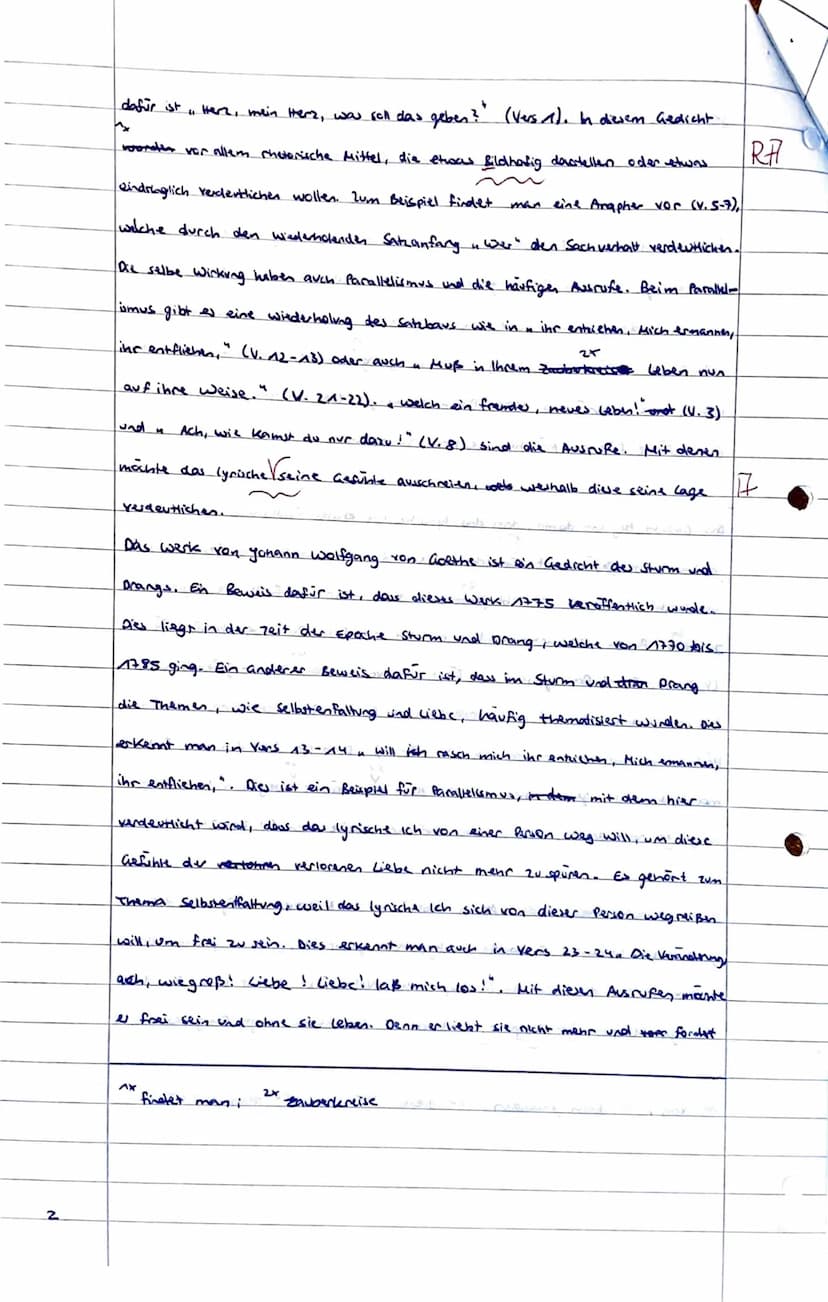 dafür ist „Herz, mein Herz, was soll das geben?" (Vers 1). In diesem Gedicht
1x
worden vor allem rhetorische Mittel, die etwas Bildhaftig darstellen oder etwas
RF
eindringlich verdeutlichen wollen. Zum Beispiel findet man eine Anapher vor (V. 5-7),
welche durch den wiederholenden Satzanfang „Weg" den Sachverhalt verdeutlichen.
Die selbe Wirkung haben auch Parallelismus und die häufigen Ausrufe. Beim Parallel-
ismus gibt es eine wiederholung des Satzbaus wie in „ihr entziehen, Mich ermannen,
ihr entfliehen," (V. 12-13) oder auch „Muß in Ihrem Zauberkreise 2x Leben nun
auf ihre Weise." (V. 21-22). „welch ein fremdes, neues Lebn!" und (V. 3)
und „Ach, wie kamst du nur dazu!" (V. 8) sind die Ausrufe. Mit denen
möchte das lyrische √ seine Gefühle ausschreien, weshalb diese seine Lage
I7
verdeutlichen.
Das Werk von Johann Wolfgang von Goethe ist ein Gedicht des Sturm und
Drangs. Ein Beweis dafür ist, dass dieses Werk 1775 veröffentlich wurde.
Dies liegt in der Zeit der Epoche Sturm und Drang, welche von 1770 bis
1785 ging. Ein anderer Beweis dafür ist, dass im Sturm und dran Drang
die Themen, wie Selbstenfaltung und Liebe, häufig thematisiert wurden. Dies
erkennt man in Vers 13-14 „will ich rasch mich ihr entziehen, Mich ermannen,
ihr entfliehen,". Dies ist ein Beispiel für Parallelismus, in dem mit dem hier
verdeutlicht wird, dass das lyrische Ich von einer Person weg will, um diese
Gefühle der verlornen verlorenen Liebe nicht mehr zu spüren. Es gehört zum
Thema Selbstentfaltung, weil das lyrische Ich sich von dieser Person wegreißen
will, um frei zu sein. Dies erkennt man auch in Vers 23-24 „Die Verändrung,
ach, wie groß! Liebe! Liebe! laß mich los!". Mit diesen Ausrufen, möchte
er frei sein und ohne sie leben. Denn er liebt sie nicht mehr und fordert
1x findet man; 2x Zauberkreise
2